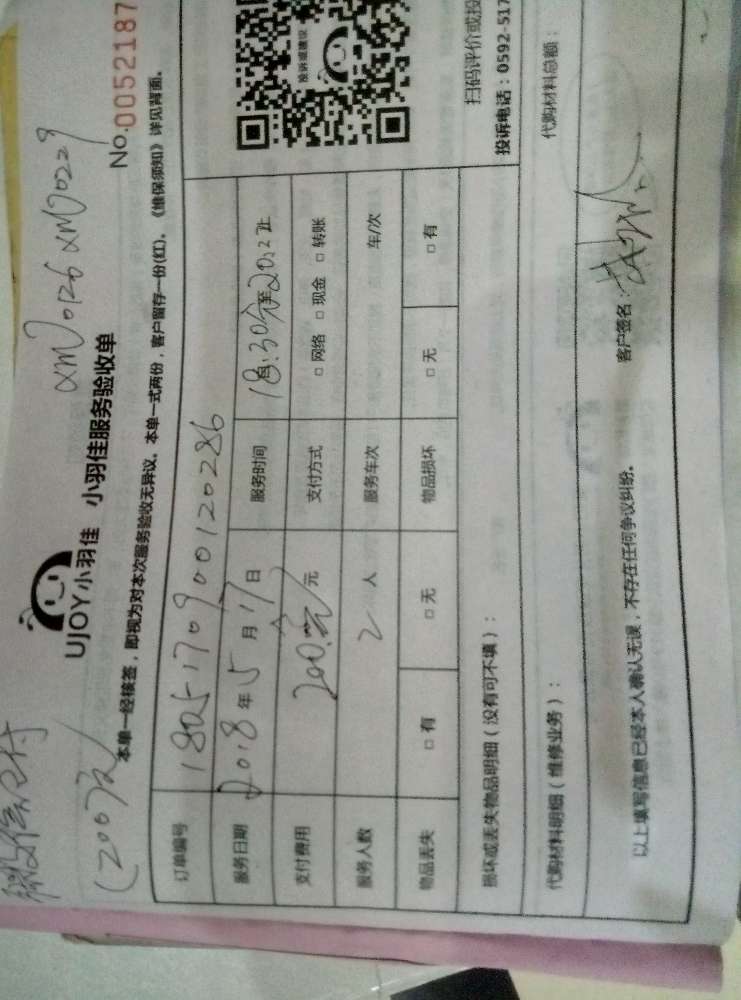 微信支付
(200元)
XM0126 XM0229
UJOY小羽佳 小羽佳服务验收单
No.0052187
本单一经核签，即视为对本次服务验收无异议。本单一式两份，客户留存一份(红)。《维保须知》详见背面。
订单编号 1805170900120286
服务日期 2018年5月17日 服务时间 18:30分至20:2 止
支付费用 200元 元 支付方式 □ 网络 □ 现金 □ 转账
服务人数 2 人 服务车次 车/次
物品丢失 □ 有 □ 无 物品损坏 □ 无 □ 有
投诉或建议
扫码评价或投
投诉电话：0592-517
损坏或丢失物品明细（没有可不填）：
代购材料明细（维修业务）： 代购材料总额：
以上填写信息已经本人确认无误，不存在任何争议纠纷。 客户签名：